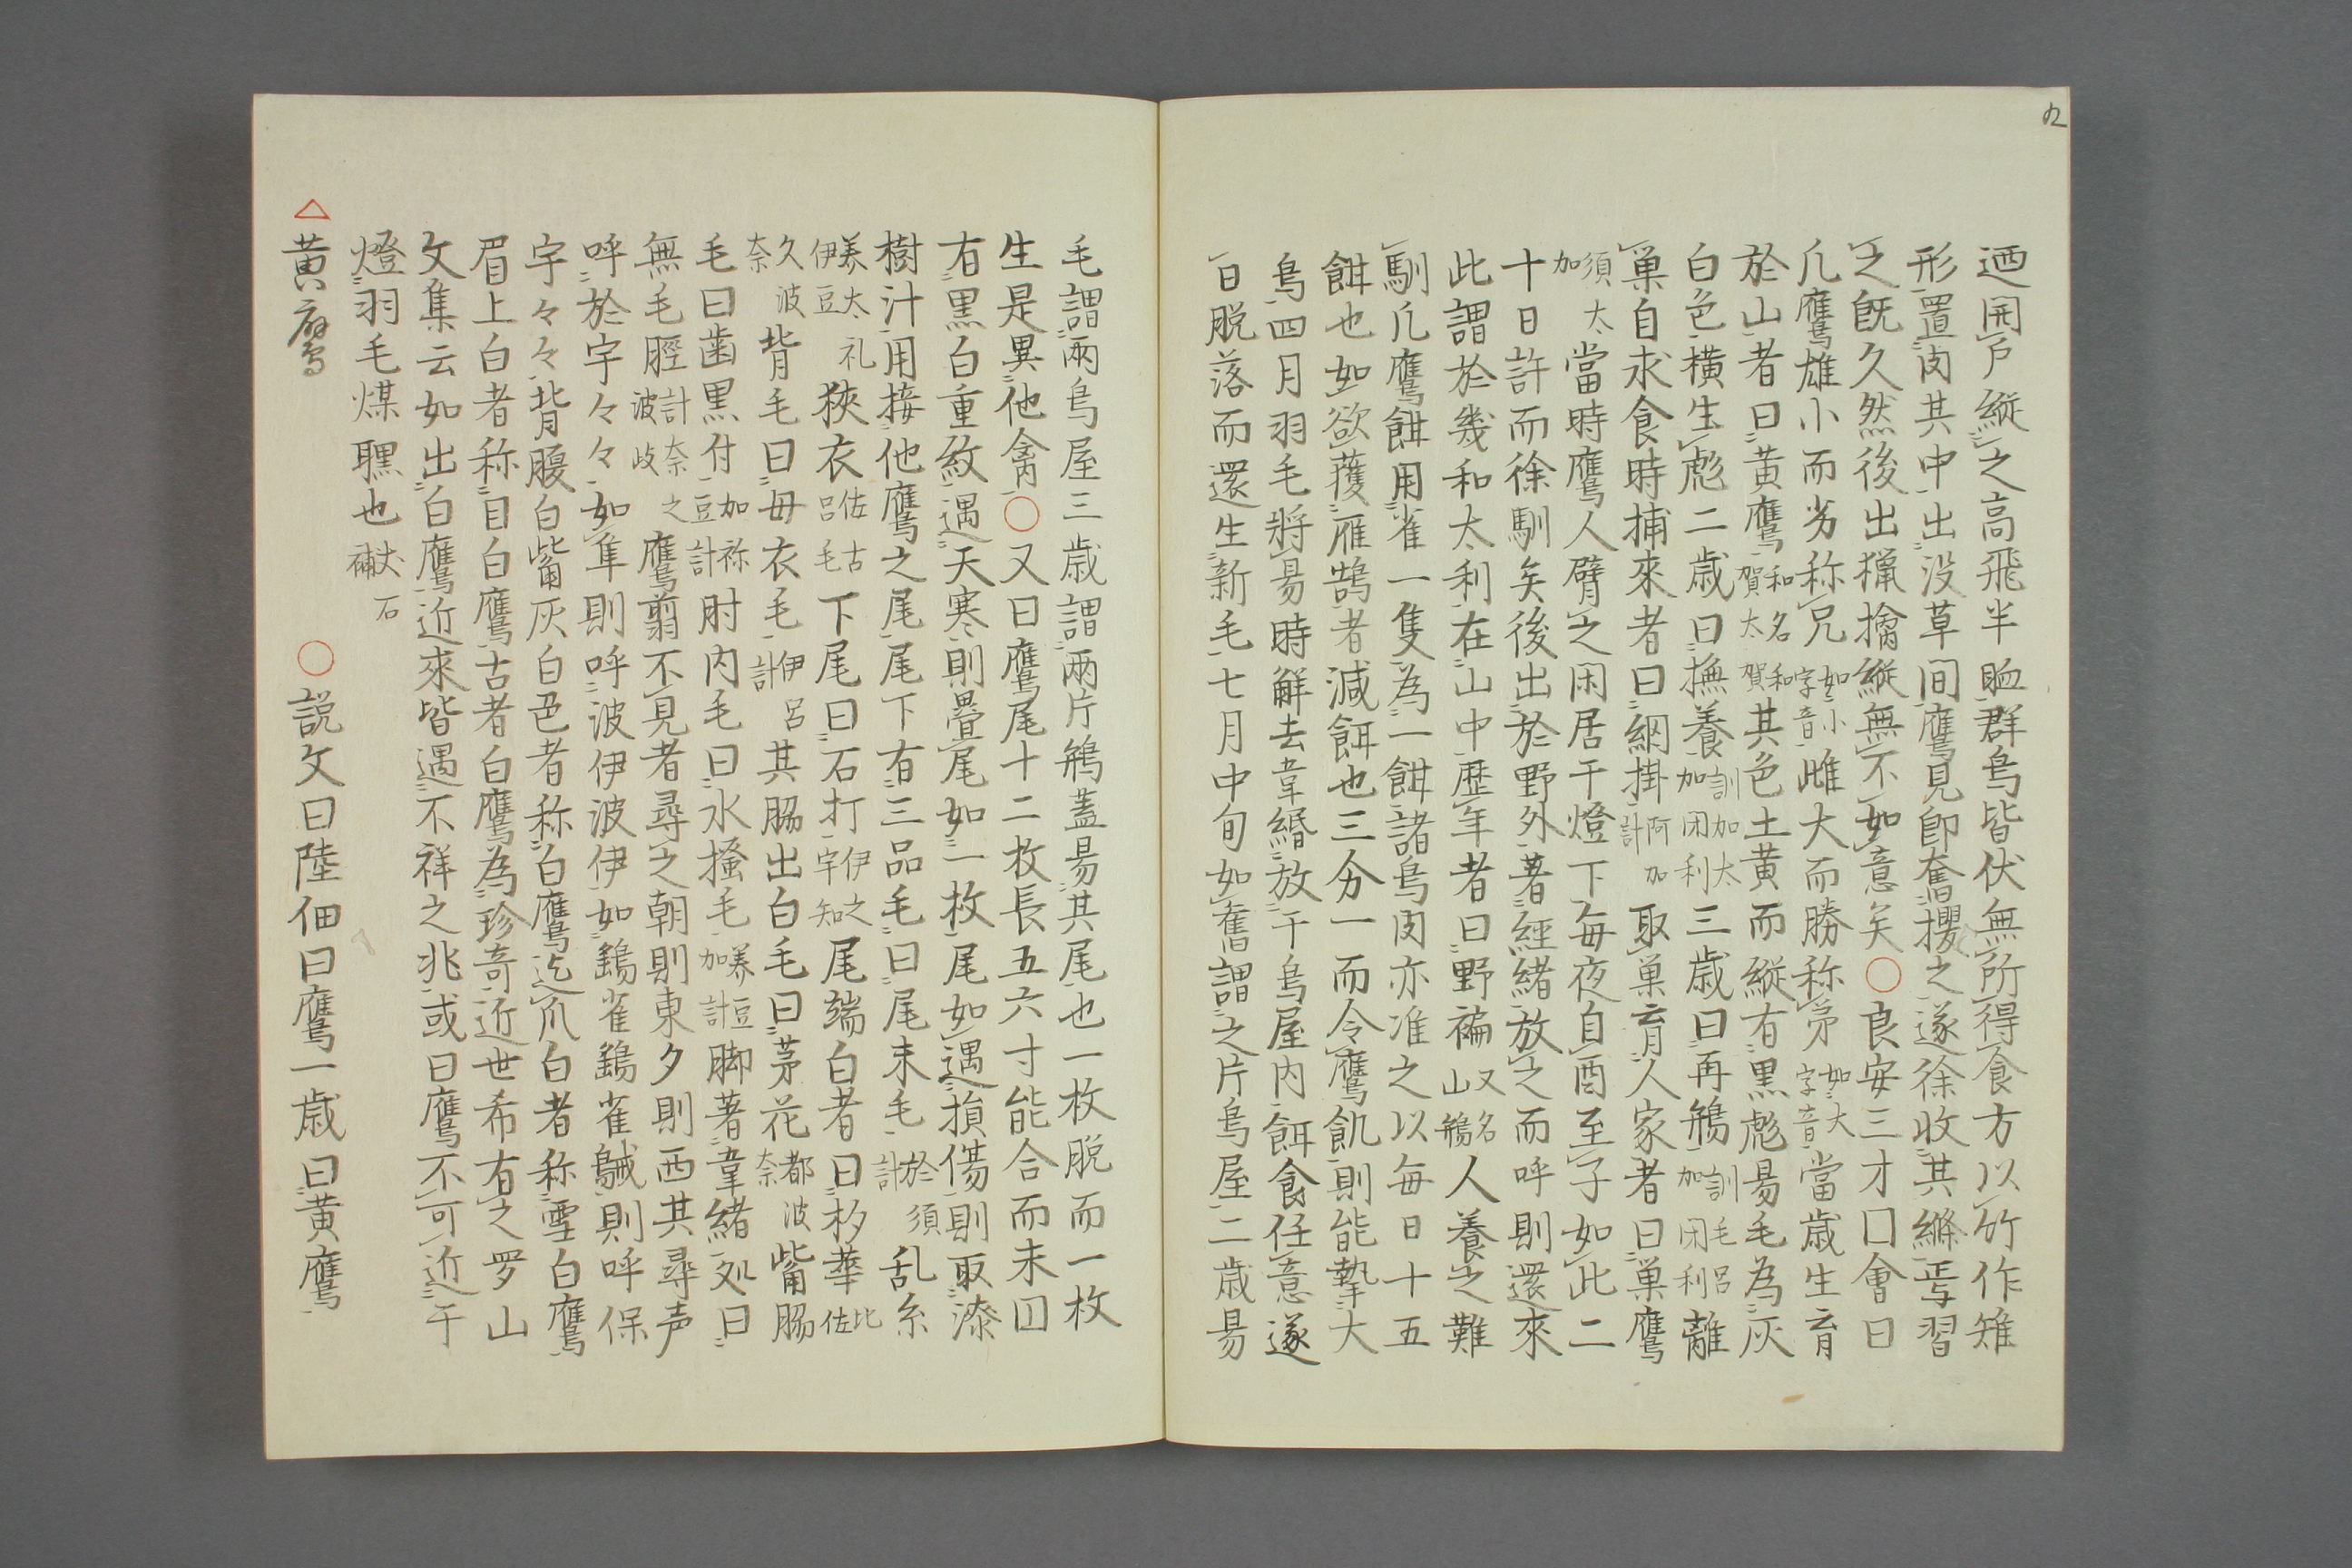 九
迺開戸縦之高飛半䀋群鳥皆伏無所得食方以竹作雉
形置肉其中出没草間鷹見即奮攫之遂徐收其縧焉習
之既久然後出獵擒縦無不如意矣○良安三才囗會曰
凡鷹雄小而劣称兄如小字音雌大而勝称弟如大字音當歳生育
於山者曰黄鷹和名賀太和賀其色土黄而縦有黒彪易毛為灰
白色横生彪二歳曰撫養訓加太加閉利三歳曰再鴘訓毛呂加閉利離
巣自求食時捕來者曰網掛阿加計取巣育人家者曰巣鷹
須太加當時鷹人臂之闲居于燈下毎夜自酉至子如此二
十日許而徐馴矣後出於野外著經緒放之而呼則還來
此謂於幾和太利在山中歴年者曰野褊又名山鴘人養之難
馴凡鷹餌用雀一隻為一餌諸鳥肉亦准之以毎日十五
餌也如欲獲雁鵠者減餌也三分一而令鷹飢則能摯大
鳥四月羽毛將易時觧去韋緡放于鳥屋内餌食任意遂
日脱落而還生新毛七月中旬如舊謂之片鳥屋二歳易
毛謂兩鳥屋三歳謂兩片鴘蓋易其尾也一枚脱而一枚
生是異他禽○又曰鷹尾十二枚長五六寸能合而未囗
有黒白重紋遇天寒則疊尾如一枚尾如遇損傷則取漆
樹汁用接他鷹之尾尾下有三品毛曰尾末毛於須計乱糸
养太礼伊豆狹衣佐古呂毛下尾曰石打伊之宇知尾端白者曰杉華比佐
久波奈背毛曰毋衣毛伊呂計其脇出白毛曰茅花都波奈觜脇
毛曰歯黒付加祢豆計肘内毛曰水搔毛养豆加計脚著韋緒処曰
無毛脛計奈之波岐鷹翦不見者尋之朝則東夕則西其尋声
呼於宇々々如隼則呼波伊波伊如鷂雀鷂雀𪀚則呼保
宇々々背腹白觜灰白色者称白鷹迄爪白者称雪白鷹
眉上白者称目白鷹古者白鷹為珍奇近世希有之罗山
文集云如出白鷹近來皆遇不祥之兆或曰鷹不可近于
燈羽毛煤䵵也丈石補
△黄鷹　○説文曰陸佃曰鷹一歳曰黄鷹